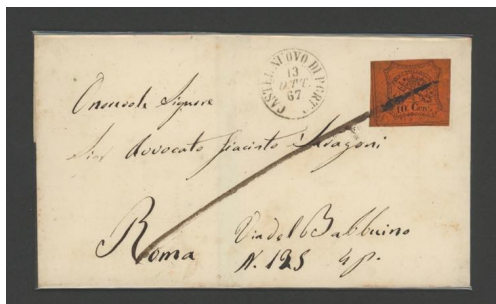 CASTEL NUOVO DI PORTO
13
OTT.
67
10 Cent
Onorevole Signore
Sig Avvocato Giacinto
Roma
Via del Babbuino
N. 125 4 p.